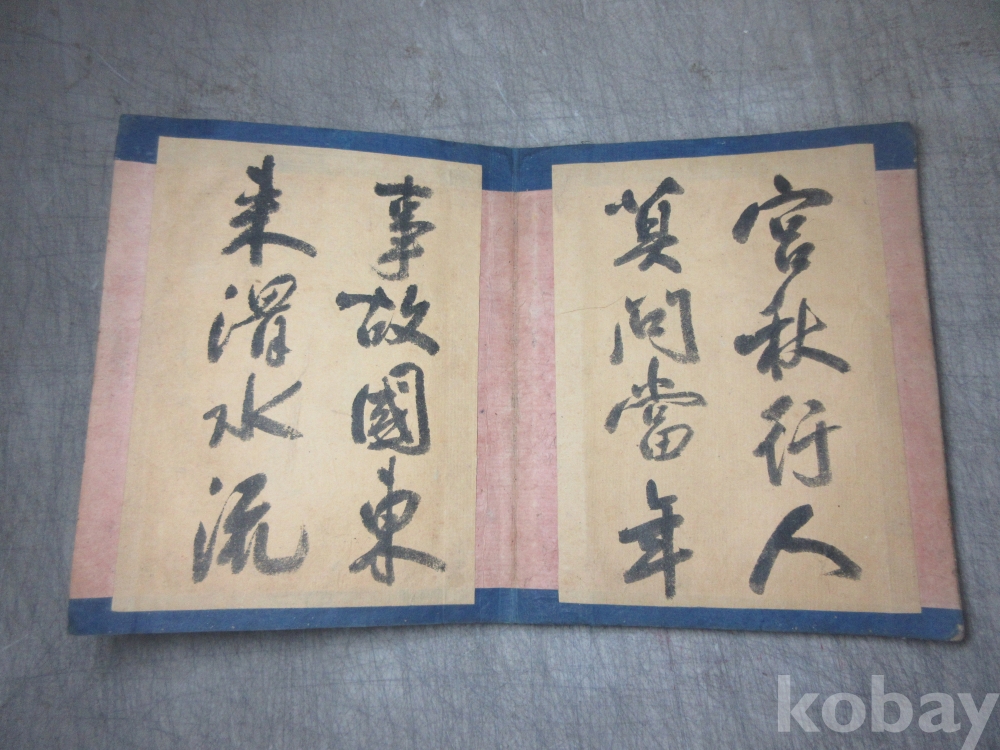 宮秋行人
莫問當年
事故國東
来渭水流
kobay